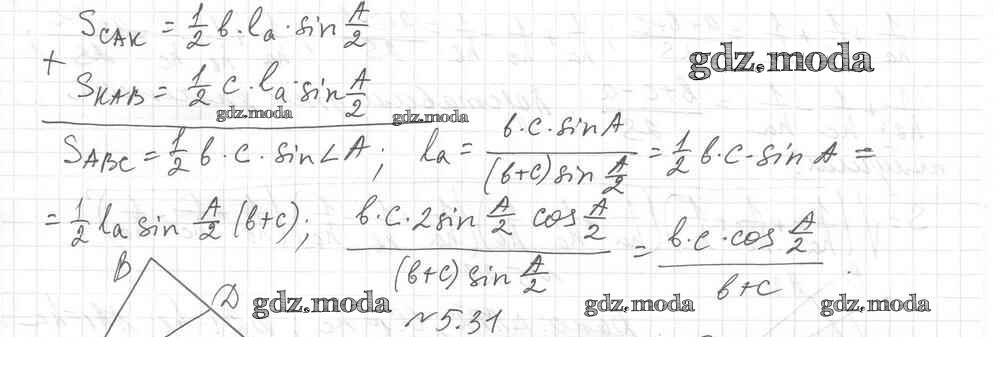 S_CAK = 1/2 b·l_a·sin A/2
gdz.moda
+
S_KAB = 1/2 c·l_a·sin A/2
gdz.moda gdz.moda
S_ABC = 1/2 b·c·sin∠A; l_a = b·c·sinA / (b+c)sin A/2 = 1/2 b·c·sin A =
= 1/2 l_a sin A/2 (b+c); b·c·2sin A/2 cos A/2 / (b+c) sin A/2 = b·c·cos A/2 / b+c .
B
D gdz.moda gdz.moda gdz.moda
~5.31